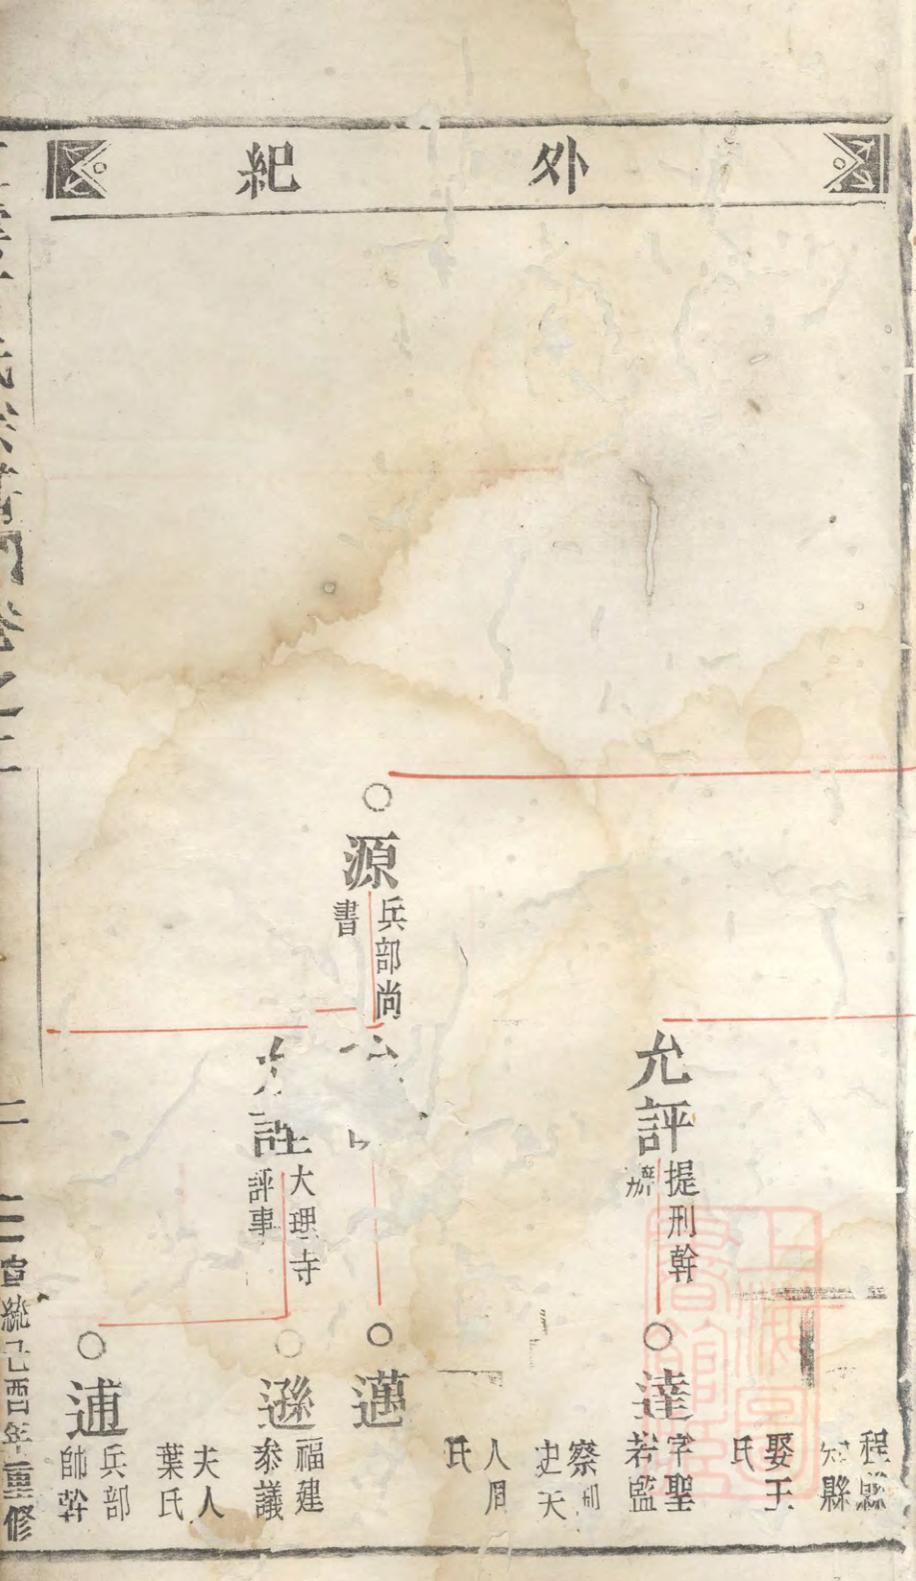 外紀
程縣
知縣
娶王
氏
允評
提刑幹
達
字聖
若監
察
史夫
人周
氏
源
兵部尚
書
邁
大理寺
評事
遜
福建
叅議
夫人
葉氏
逋
兵部
帥幹
宣統己酉年重修